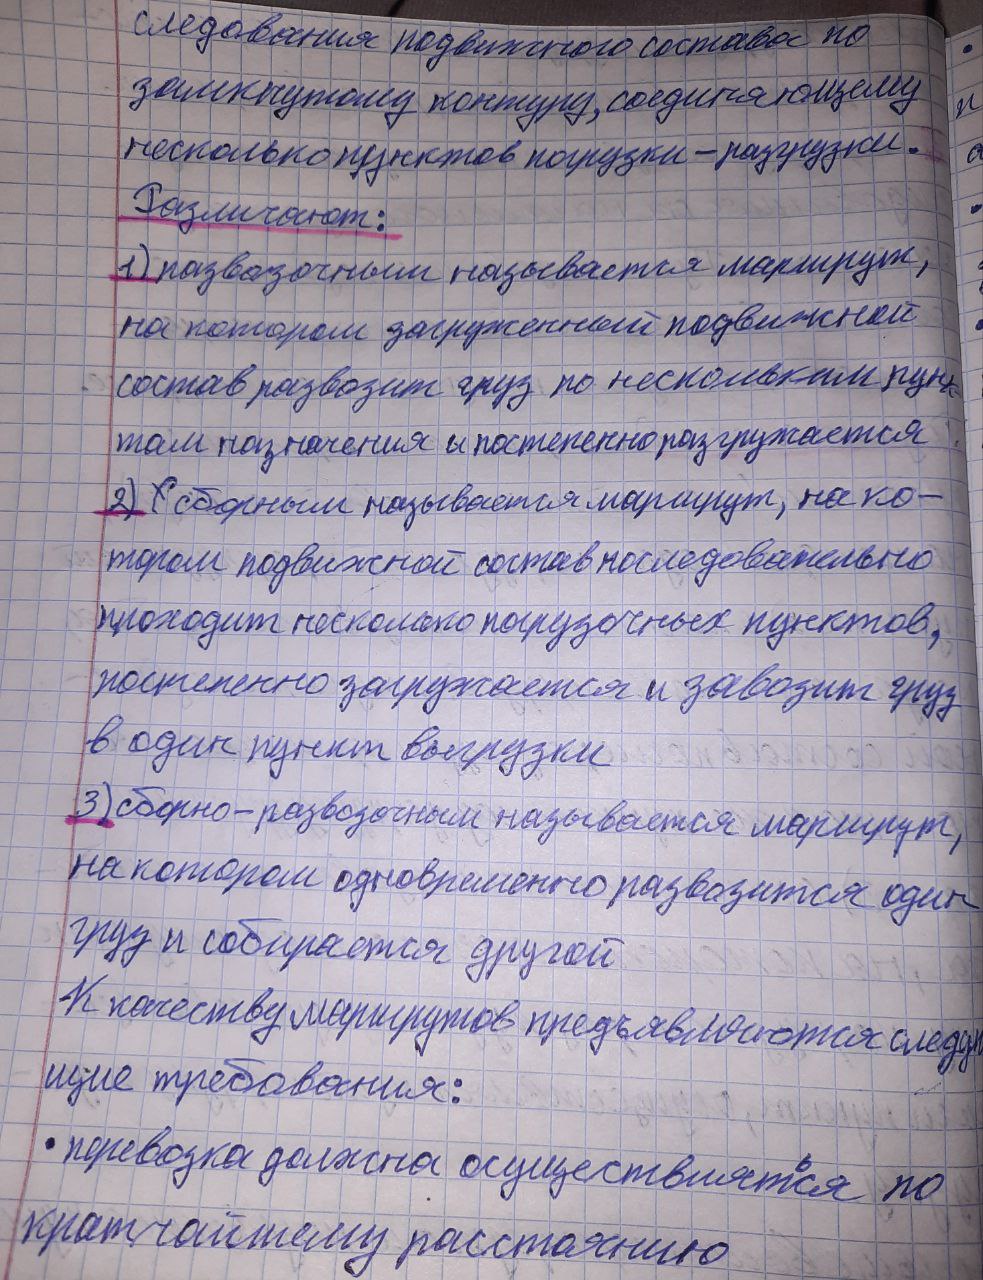 следования подвижного состава по
замкнутому контуру, соединяющему
несколько пунктов погрузки – разгрузки.
Различают:
1) развозочным называется маршрут,
на котором загруженный подвижной
состав развозит груз по нескольким пунк-
там назначения и постепенно разгружается
2) сборным называется маршрут, на ко-
тором подвижной состав последовательно
проходит несколько погрузочных пунктов,
постепенно загружается и завозит груз
в один пункт выгрузки
3) сборно-развозочным называется маршрут,
на котором одновременно развозится один
груз и собирается другой
К качеству маршрутов предъявляются следую
щие требования:
• перевозка должна осуществляться по
кратчайшему расстоянию